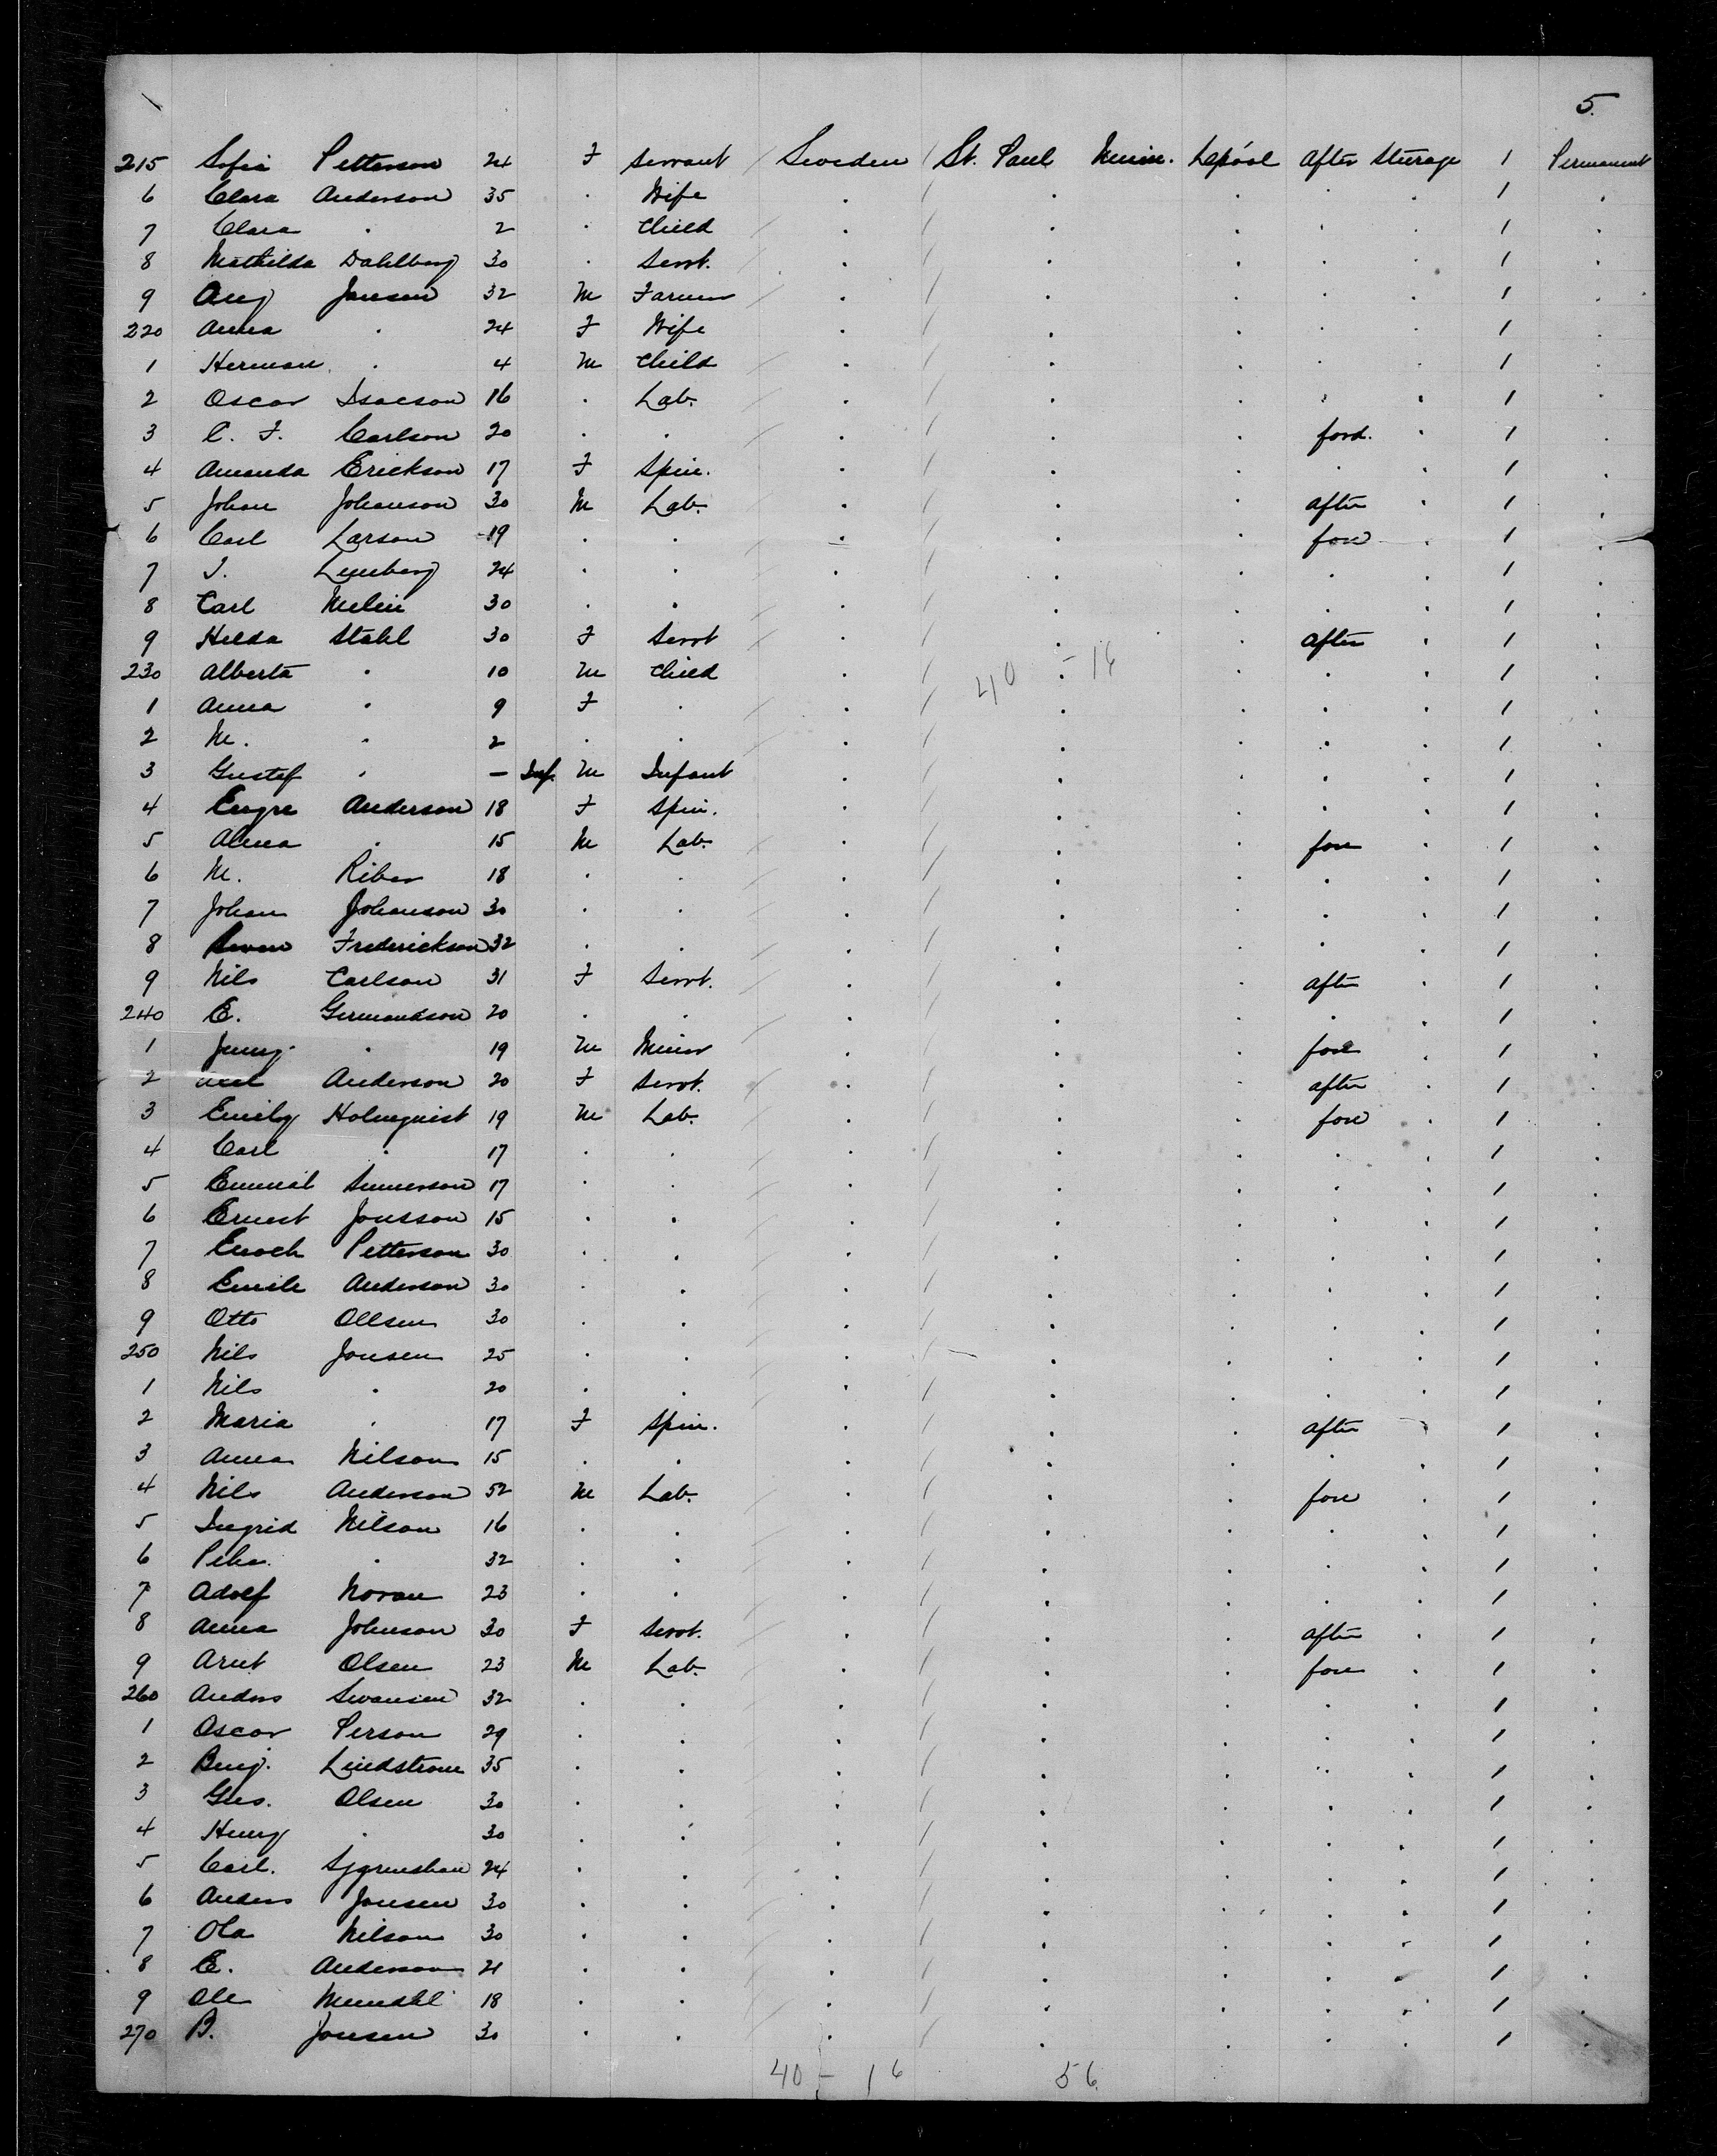 5.
215 Sofia Petterson 24 F Servant Sweden St. Paul Minn. Lepool after Steerage 1 Permanent
6 Clara Anderson 35 . Wife . . . . . 1 .
7 Clara . 2 . Child . . . . . 1 .
8 Mathilda Dahlberg 30 . Servt. . . . . . 1 .
9 Aug Jansen 32 M Farmer . . . . . 1 .
220 Anna . 24 F Wife . . . . . 1 .
1 Herman . 4 M Child . . . . . 1 .
2 Oscar Isacson 16 . Lab. . . . . . 1 .
3 C. F. Carlson 20 . . . . . ford. . 1 .
4 Amanda Erickson 17 F Spin. . . . . . 1 .
5 Johan Johanson 30 M Lab. . . . after . 1 .
6 Carl Larson 19 . . . . . fore . 1 .
7 J. Lumberg 24 . . . . . . . 1 .
8 Carl Melin 30 . . . . . . . 1 .
9 Hilda Stahl 30 F Servt . . . after . 1 .
230 Alberta . 10 M Child . . . . . 1 .
40 - 16
1 Anna . 9 F . . . . . . 1 .
2 M. . 2 . . . . . . . 1 .
3 Gustef . — Inf. M Infant . . . . . 1 .
4 Engre Anderson 18 F Spin. . . . . . 1 .
5 Alma . 15 M Lab. . . . fore . 1 .
6 M. Riber 18 . . . . . . . 1 .
7 Johan Johanson 30 . . . . . . . 1 .
8 Swen Frederickson 32 . . . . . . . 1 .
9 Nils Carlson 31 F Servt. . . . after . 1 .
240 E. Germandson 20 . . . . . . . 1 .
1 Jenny . 19 M Minor . . . fore . 1 .
2 Anderson 20 F Servt. . . . after . 1 .
3 Emily Holmquist 19 M Lab. . . . fore . 1 .
4 Carl . 17 . . . . . . . 1 .
5 Emmial Sunnerson 17 . . . . . . . 1 .
6 Ernest Jonsson 15 . . . . . . . 1 .
7 Enoch Petterson 30 . . . . . . . 1 .
8 Emile Anderson 30 . . . . . . . 1 .
9 Otto Ollsen 30 . . . . . . . 1 .
250 Nils Jonsen 25 . . . . . . . 1 .
1 Nils . 20 . . . . . . . 1 .
2 Maria . 17 F Spin. . . . after . 1 .
3 Anna Nilson 15 . . . . . . . 1 .
4 Nils Anderson 52 M Lab. . . . fore . 1 .
5 Ingrid Nilson 16 . . . . . . . 1 .
6 Peher . 32 . . . . . . . 1 .
7 Adolf Noran 23 . . . . . . . 1 .
8 Anna Johnson 30 F Servt. . . . after . 1 .
9 Arnt Olsen 23 M Lab. . . . fore . 1 .
260 Anders Swansen 32 . . . . . . . 1 .
1 Oscar Person 29 . . . . . . . 1 .
2 Benj. Lindstrom 35 . . . . . . . 1 .
3 Gus. Olsen 30 . . . . . . . 1 .
4 Henry . 30 . . . . . . . 1 .
5 Carl. 24 . . . . . . . 1 .
6 Anders Jonsen 30 . . . . . . . 1 .
7 Ola Nilson 30 . . . . . . . 1 .
8 E. Anderson 21 . . . . . . . 1 .
9 Ole 18 . . . . . . . 1 .
270 B. Jonsen 30 . . . . . . . 1 .
40 - 16 56